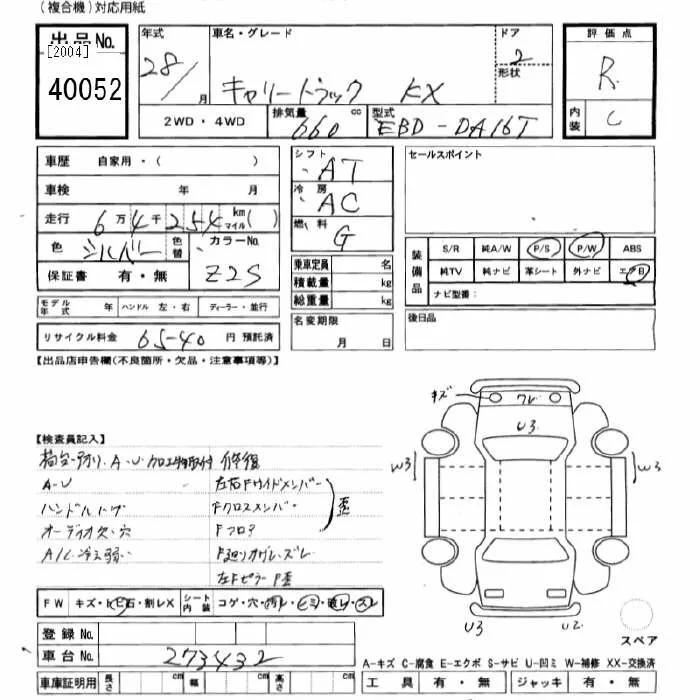 (複合機)対応用紙
出品No.
[2004]
40052
年式 28/ 月
車名・グレード キャリートラック KX
ドア 2
形状
評価点 R
内装 C
2WD・4WD
排気量 660 cc
型式 EBD-DA16T
車歴 自家用・( )
車検 年 月
走行 6万4千254 km マイル ( )
色 シルバー 色替
カラーNo. Z2S
保証書 有・無
モデル年式 年 ハンドル 左・右 ディーラー・並行
リサイクル料金 65-40 円 預託済
シフト AT
冷房 AC
燃料 G
乗車定員 名
積載量 kg
総重量 kg
名変期限 月 日
セールスポイント
装備品
S/R 純A/W P/S P/W ABS
純TV 純ナビ 革シート 外ナビ エアB
ナビ型番:
後日品
【出品店申告欄(不良箇所・欠品・注意事項等)】
【検査員記入】
A・U 加工物取付 修復
A-U 左右Fサイドメンバー
Fクロスメンバー 歪
オーディオ欠・穴 Fフロア
A/C 冷え弱い
左Fピラー
キズ
U3
W3
W3
U3
U2
スペア
FW キズ・ヒビ石・割レX
シート内装 コゲ・穴・汚レ・シミ・破レ・スレ
登録No.
車台No. 273432
車庫証明用 長さ cm 幅 cm 高さ cm
A-キズ C-腐食 E-エクボ S-サビ U-凹ミ W-補修 XX-交換済
工具 有・無 ジャッキ 有・無